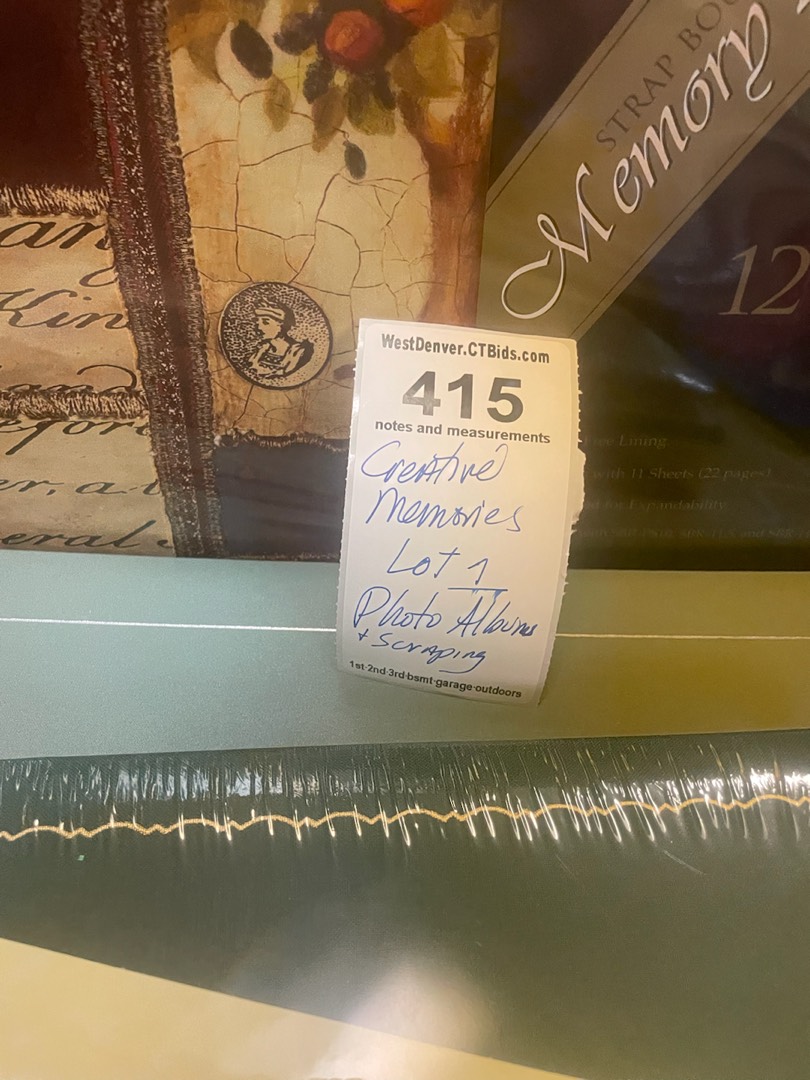 STRAP BOU
Memory
12
an
Kin
efor
er, a
eral
WestDenver.CTBids.com
415
notes and measurements
Creative
Memories
Lot 1
Photo Albums
+ Scraping
1st·2nd·3rd·bsmt·garage·outdoors
Free Lining
with 11 Sheets (22 pages)
for Expandability